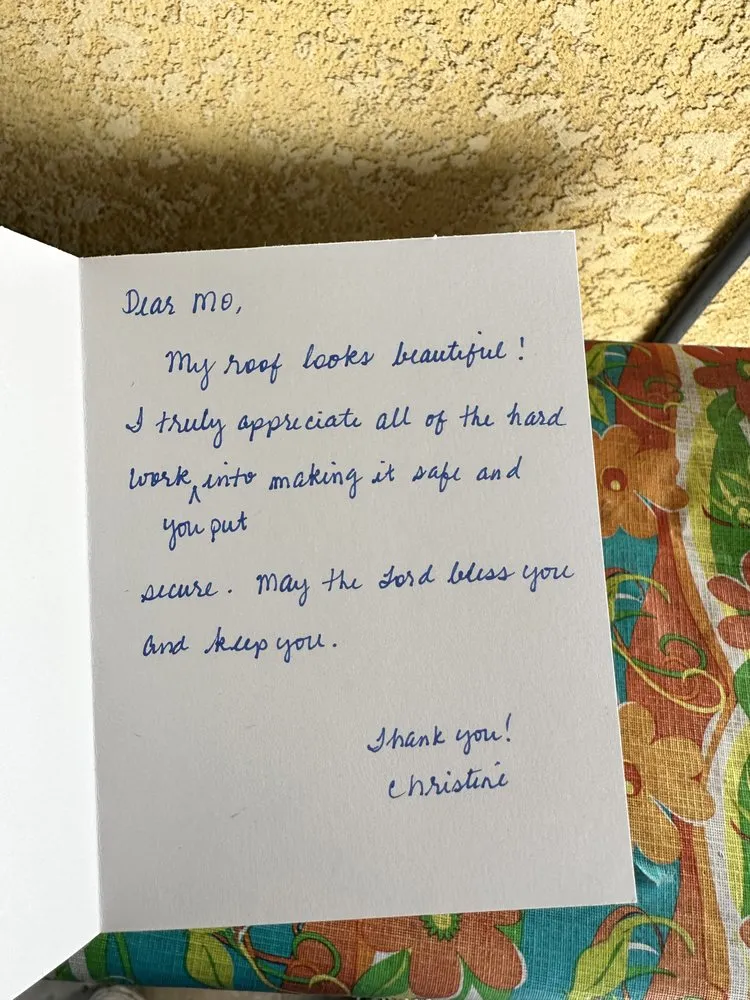 Dear Mo,
My roof looks beautiful!
I truly appreciate all of the hard
work ^ into making it safe and
you put
secure. May the Lord bless you
and keep you.
Thank you!
Christine